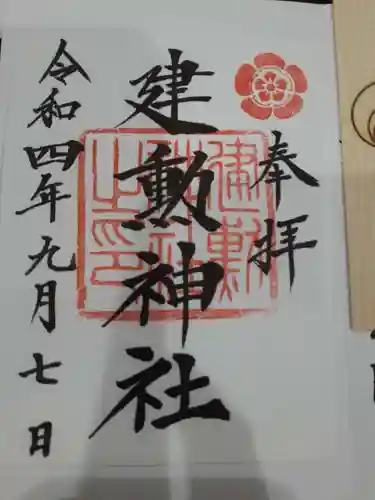 奉拝
建勲神社
令和四年九月七日
建勲
神社
之印